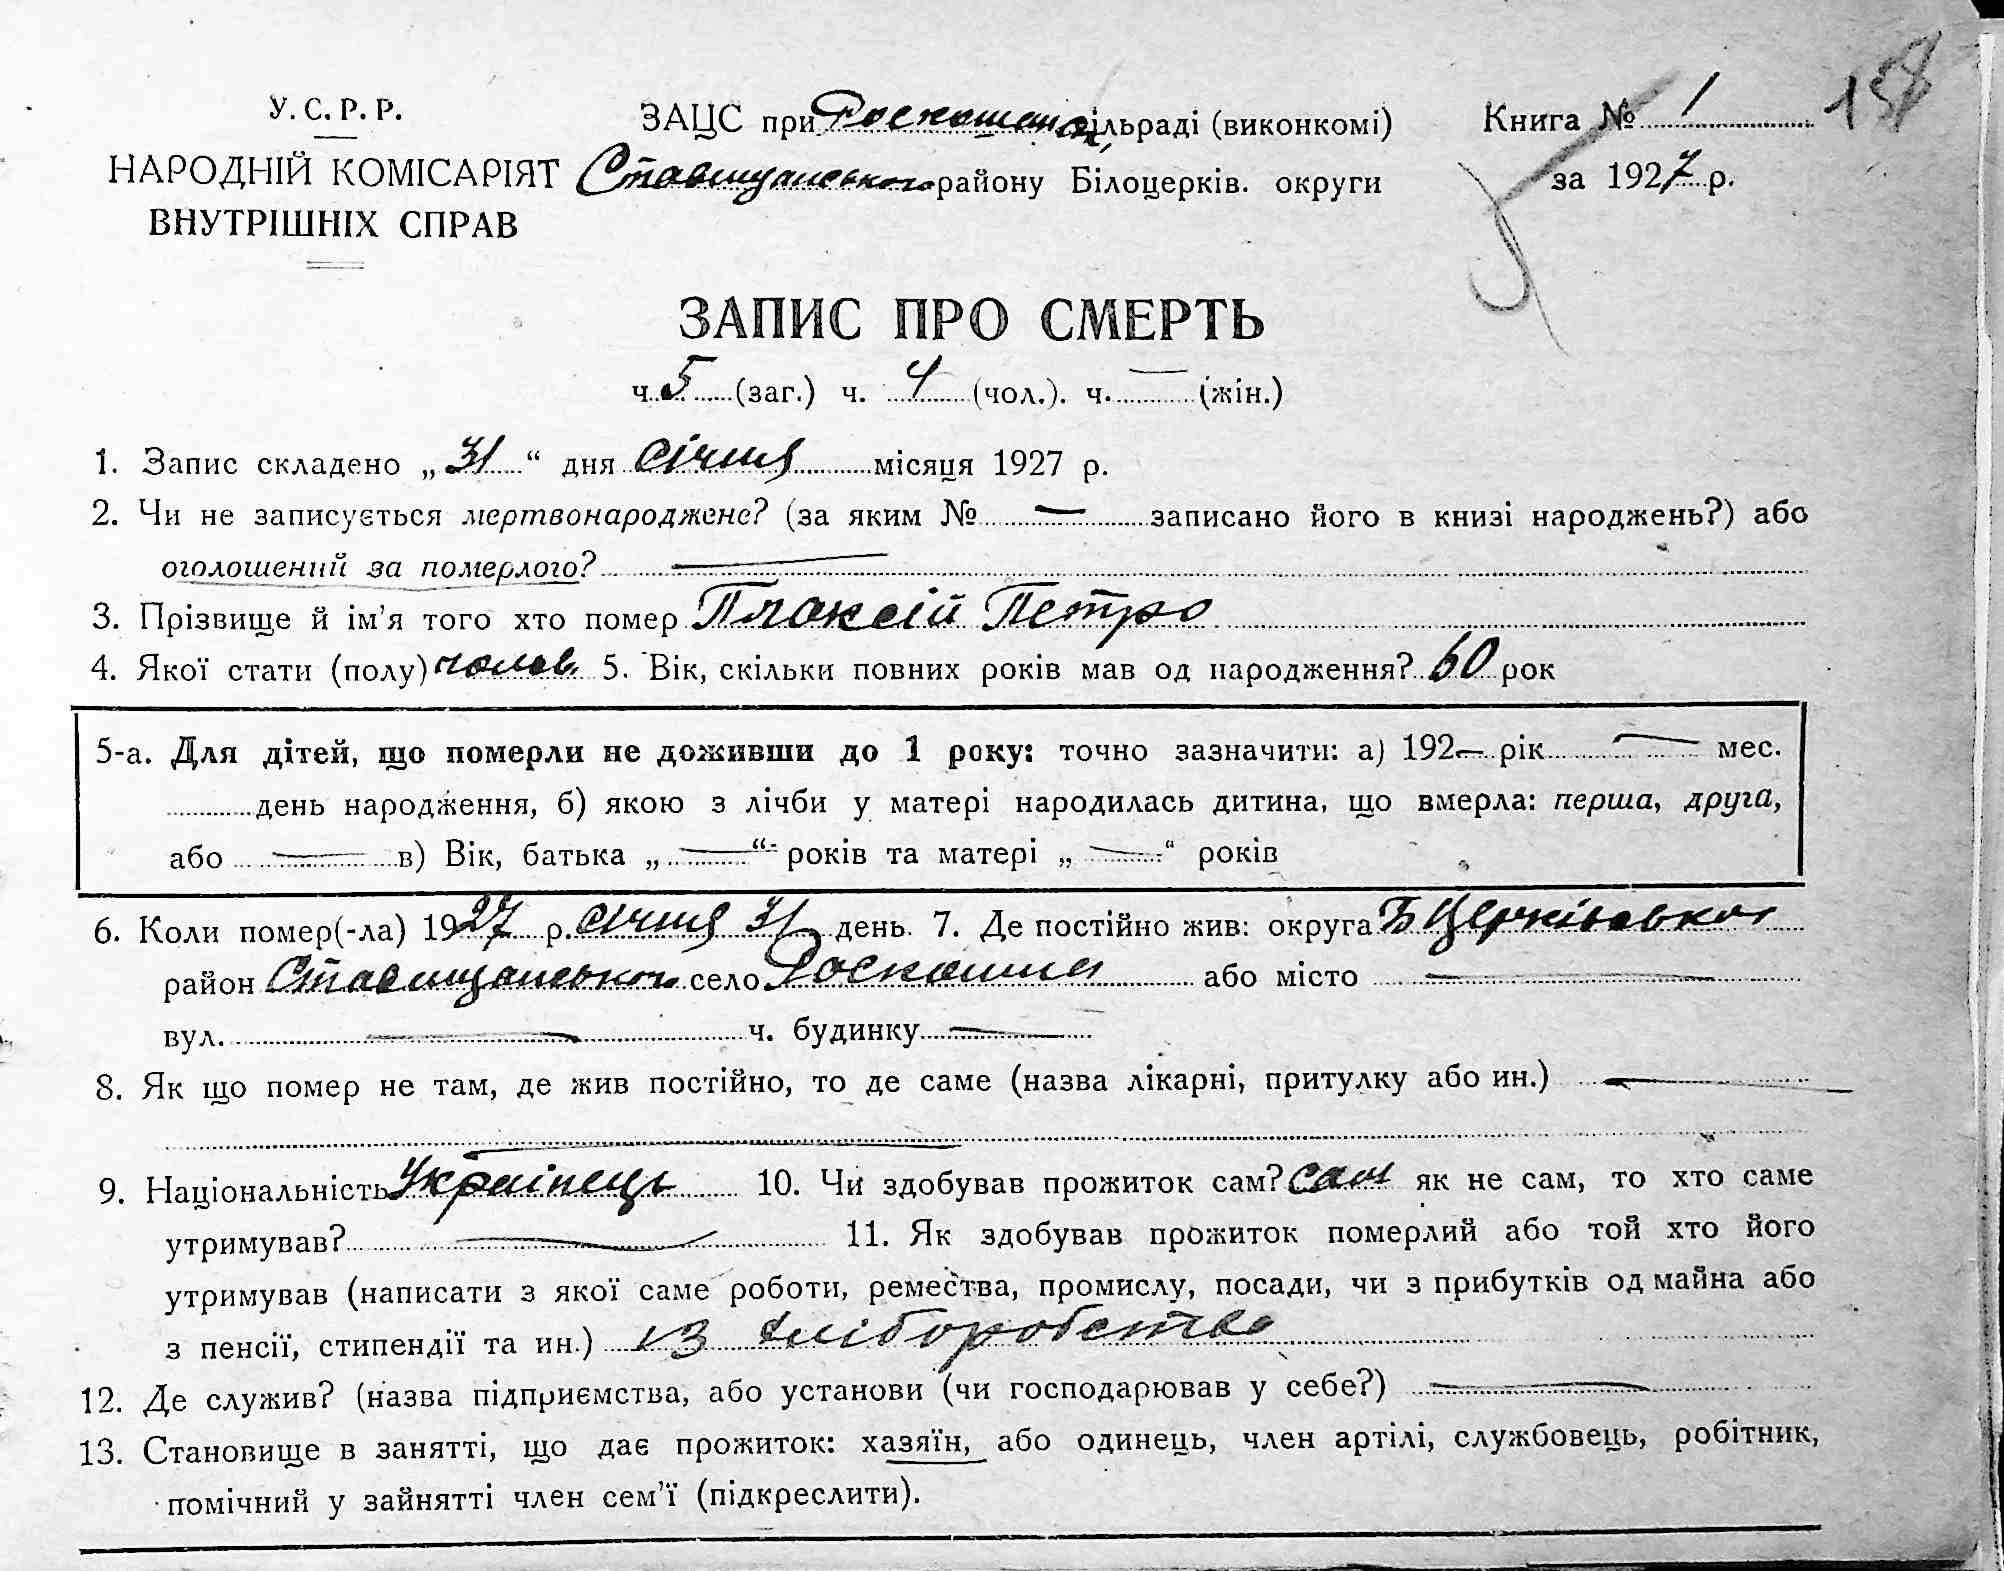 У. С. Р. Р.
НАРОДНІЙ КОМІСАРІЯТ
ВНУТРІШНІХ СПРАВ
ЗАЦС при Роскошан сільраді (виконкомі)
Ставищанського району Білоцерків. округи
Книга № 1
за 1927 р.
ЗАПИС ПРО СМЕРТЬ
ч. 5 (заг.) ч. 4 (чол.). ч. — (жін.)
1. Запис складено „31“ дня січня місяця 1927 р.
2. Чи не записується мертвонароджене? (за яким № — записано його в книзі народжень?) або
оголошений за померлого? —
3. Прізвище й ім'я того хто помер Плаксій Петро
4. Якої стати (полу) чолов. 5. Вік, скільки повних років мав од народження? 60 рок
5-а. Для дітей, що померли не доживши до 1 року: точно зазначити: а) 192— рік — мес.
день народження, б) якою з лічби у матері народилась дитина, що вмерла: перша, друга,
або — в) Вік, батька „—“ років та матері „—“ років
6. Коли помер(-ла) 1927 р. січня 31 день. 7. Де постійно жив: округа БЦерківська
район Ставищанського село Роскошна або місто —
вул. — ч. будинку —
8. Як що помер не там, де жив постійно, то де саме (назва лікарні, притулку або ин.) —
9. Національність Українець 10. Чи здобував прожиток сам? сам як не сам, то хто саме
утримував? — 11. Як здобував прожиток померлий або той хто його
утримував (написати з якої саме роботи, ремества, промислу, посади, чи з прибутків од майна або
з пенсії, стипендії та ин.) із хліборобства
12. Де служив? (назва підприємства, або установи (чи господарював у себе?) —
13. Становище в занятті, що дає прожиток: хазяїн, або одинець, член артілі, службовець, робітник,
помічний у зайнятті член сем'ї (підкреслити).